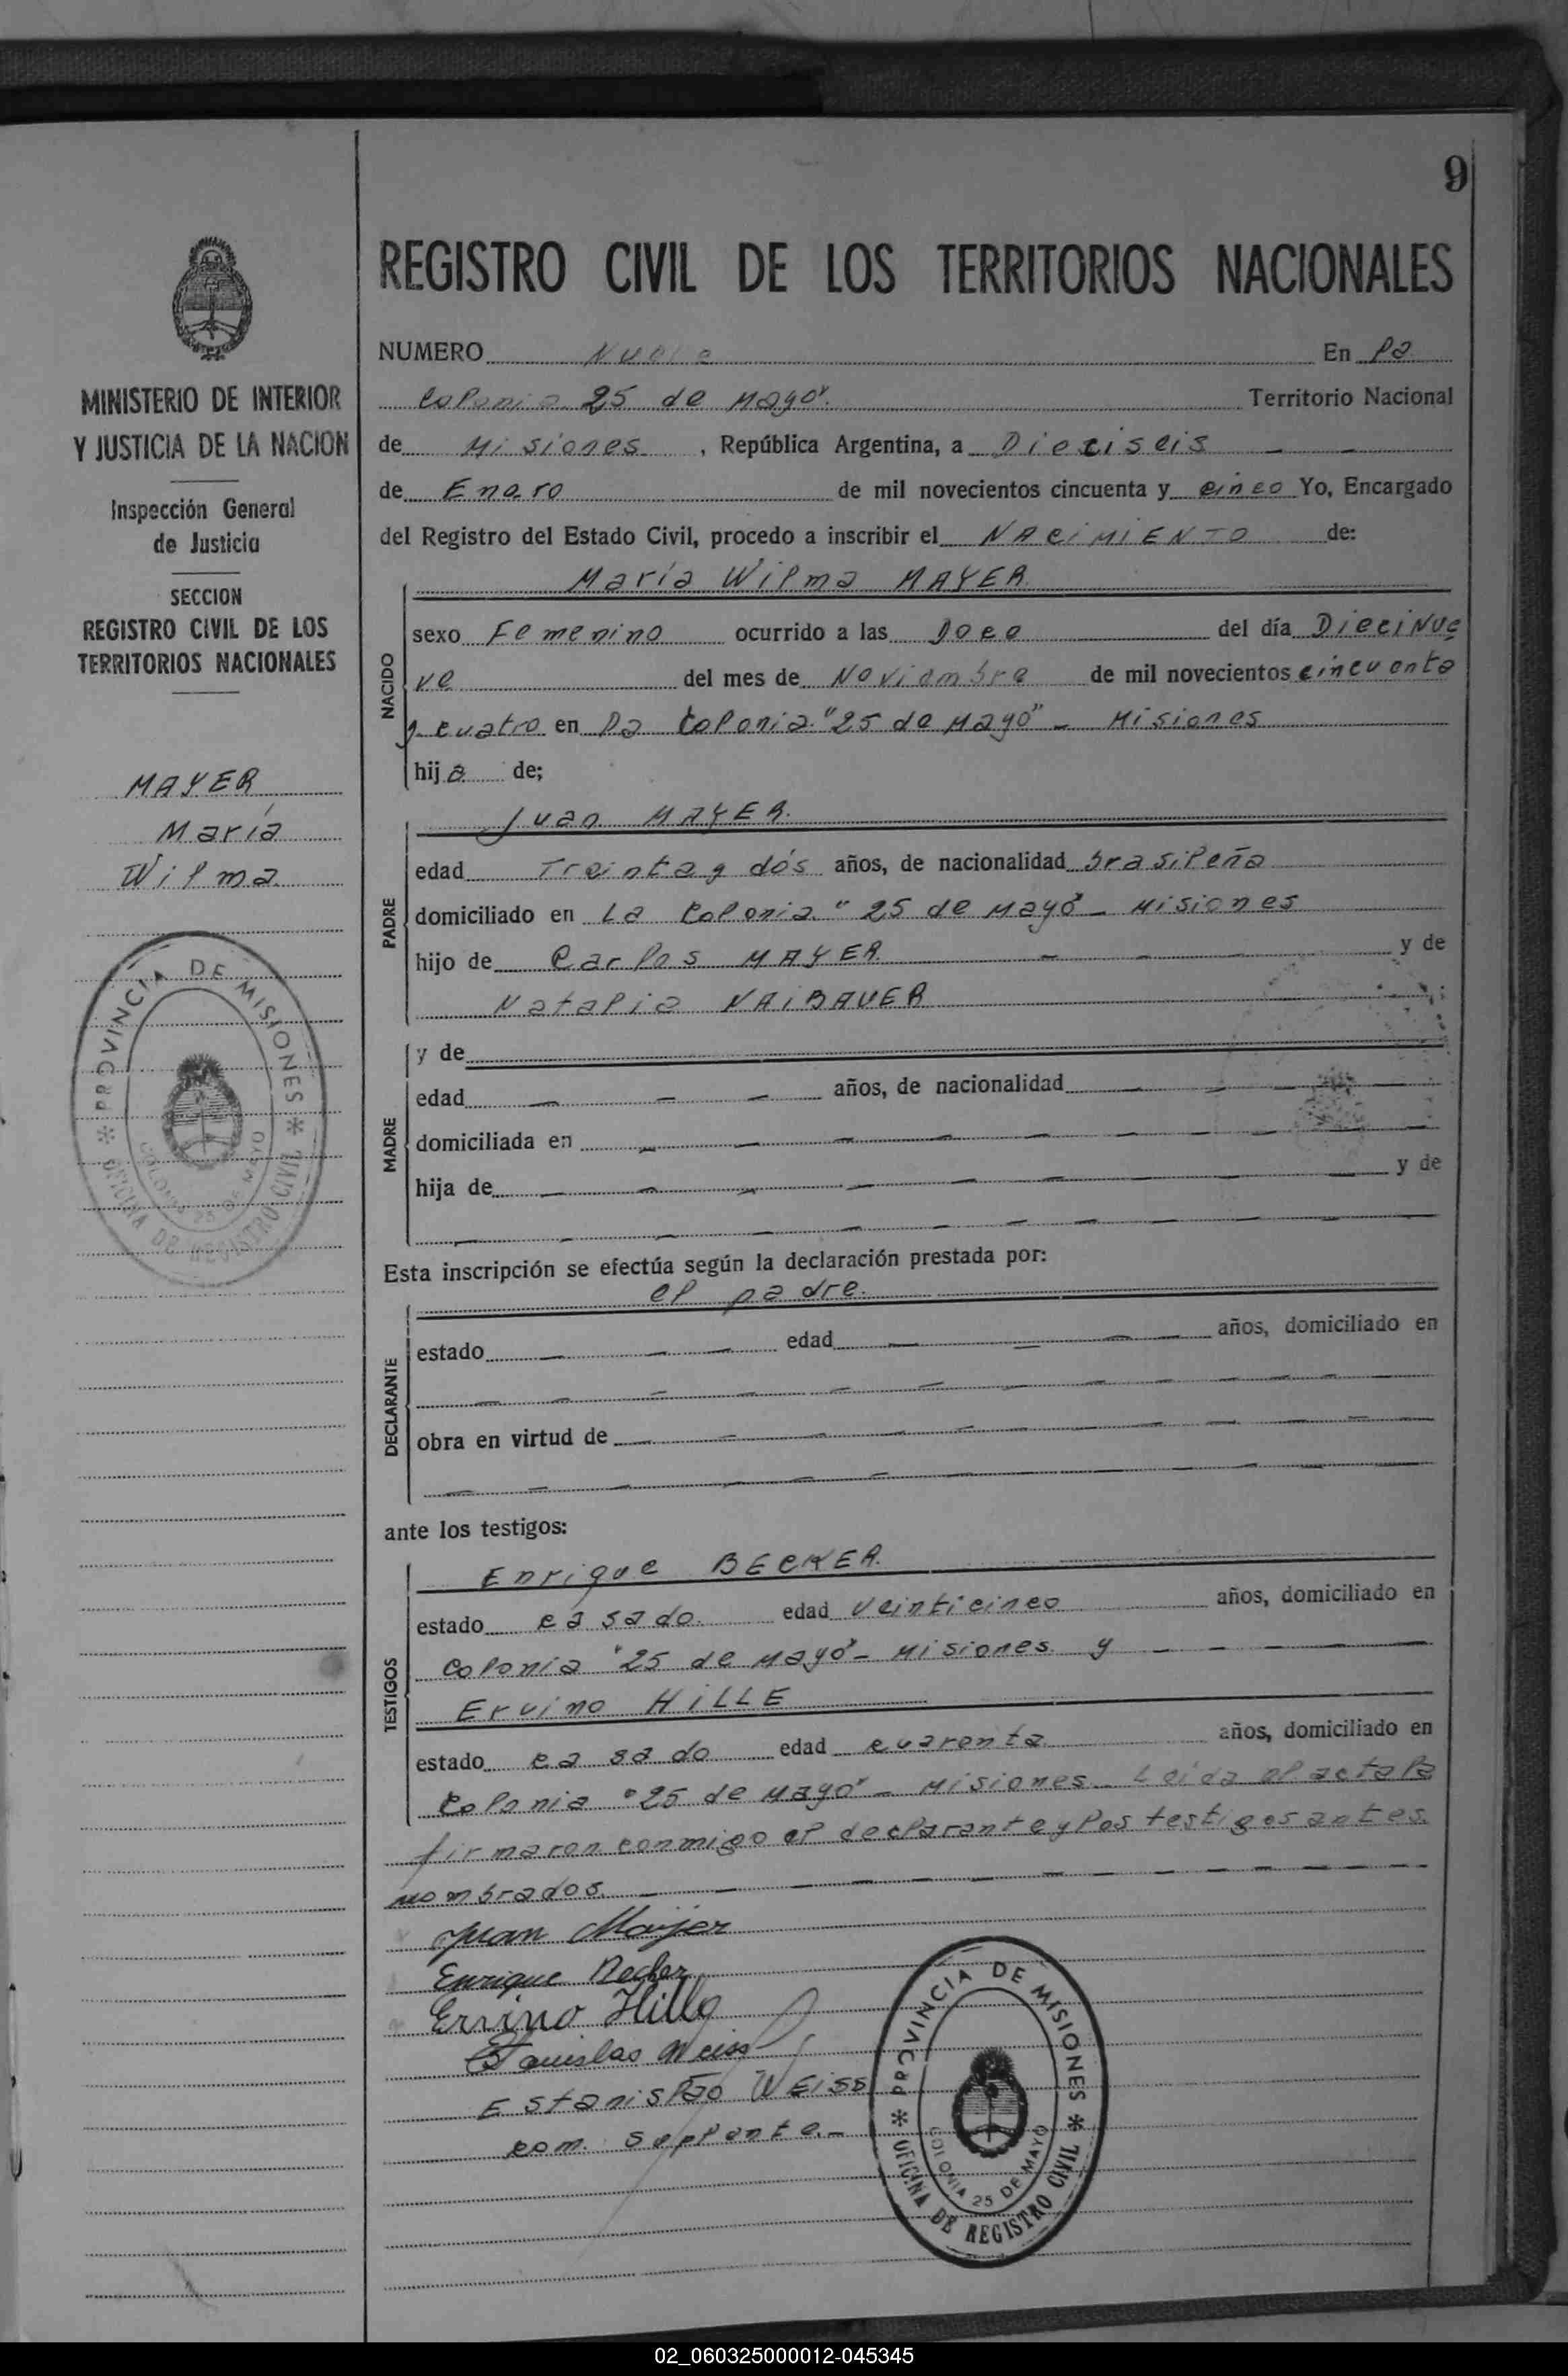 9
REGISTRO CIVIL DE LOS TERRITORIOS NACIONALES
NUMERO En la
Colonia 25 de Mayo". Territorio Nacional
de Misiones, República Argentina, a Dieciseis
de Enero de mil novecientos cincuenta y cinco Yo, Encargado
del Registro del Estado Civil, procedo a inscribir el NACIMIENTO de:
NACIDO
María Wilma MAYER
sexo Femenino ocurrido a las Doce del día Diecinue
ve del mes de Noviembre de mil novecientos cincuenta
y cuatro en la Colonia "25 de Mayo" - Misiones
hija de;
PADRE
Juan MAYER.
edad Treinta y dós años, de nacionalidad brasileña
domiciliado en La Colonia "25 de Mayo" - Misiones
hijo de Carlos MAYER y de
Natalia NAIBAUER
MADRE
y de
edad años, de nacionalidad
domiciliada en
hija de y de
Esta inscripción se efectúa según la declaración prestada por:
DECLARANTE
el padre.
estado edad años, domiciliado en
obra en virtud de
ante los testigos:
TESTIGOS
Enrique BECKER.
estado casado. edad Veinticinco años, domiciliado en
Colonia "25 de Mayo" - Misiones y
Ervino HILLE
estado casado edad cuarenta años, domiciliado en
Colonia "25 de Mayo" - Misiones. Leida el acta la
firmaron conmigo el declarante y los testigos antes
nombrados.
Juan Mayer
Enrique Becker
Ervino Hille
Estanislao Weiss
Estanislao WEISS
com. suplente.-
PROVINCIA DE MISIONES
COLONIA 25 DE MAYO
OFICINA DE REGISTRO CIVIL
MINISTERIO DE INTERIOR
Y JUSTICIA DE LA NACION
Inspección General
de Justicia
SECCION
REGISTRO CIVIL DE LOS
TERRITORIOS NACIONALES
MAYER
María
Wilma
PROVINCIA DE MISIONES
COLONIA 25 DE MAYO
OFICINA DE REGISTRO CIVIL
02_060325000012-045345